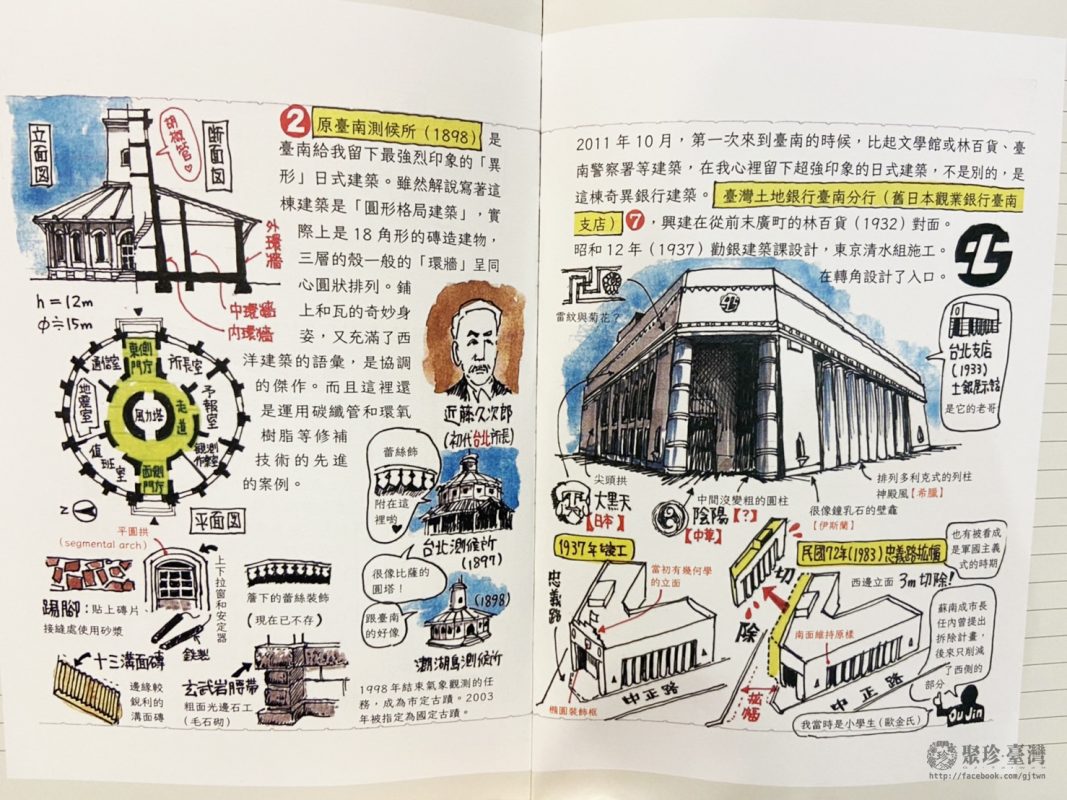 立面図
胡椒管♡
断面図
外環牆
中環牆
内環牆
h=12m
φ≒15m
2 原臺南測候所（1898） 是
臺南給我留下最強烈印象的「異
形」日式建築。雖然解說寫著這
棟建築是「圓形格局建築」，實
際上是 18 角形的磚造建物，
三層的殼一般的「環牆」呈同
心圓狀排列。鋪
上和瓦的奇妙身
姿，又充滿了西
洋建築的語彙，是協調
的傑作。而且這裡還
是運用碳纖管和環氧
樹脂等修補
技術的先進
的案例。
通信室
東側門庁
所長室
地震室
風力塔
走道
予報室
值班室
西側門庁
観測作業室
Z
平面図
近藤久次郎
（初代台北所長）
蕾絲飾
附在這
裡喲
♥
台北測候所
（1897）
很像比薩的
圓塔！
跟臺南
的好像
（1898）
澎湖島測候所
平圓拱
(segmental arch)
踢腳：貼上磚片
接縫處使用砂漿
上下拉窗和安定器
鉄製
簷下的蕾絲裝飾
（現在已不存）
十三溝面磚
邊緣較
銳利的
溝面磚
玄武岩腰帶
粗面光邊石工
（毛石砌）
1998 年結束氣象觀測的任
務，成為市定古蹟。2003
年被指定為國定古蹟。
2011 年 10 月，第一次來到臺南的時候，比起文學館或林百貨、臺
南警察署等建築，在我心裡留下超強印象的日式建築，不是別的，是
這棟奇異銀行建築。 臺灣土地銀行臺南分行（舊日本觀業銀行臺南
支店） 7 ，興建在從前末廣町的林百貨（1932）對面。
昭和 12 年（1937）勸銀建築課設計，東京清水組施工。
在轉角設計了入口。
雷紋與菊花？
台北支店
（1933）
土銀展示館
是它的老哥
尖頭拱
大黒天
【日本】
中間沒變粗的圓柱
陰陽【?】
【中華】
很像鐘乳石的壁龕
【伊斯蘭】
排列多利克式的列柱
神殿風【希臘】
1937年竣工
當初有幾何學
的立面
忠義路
中正路
橢圓裝飾框
切除
民國72年(1983)忠義路拡幅
西邊立面 3m切除！
南面維持原樣
拡幅
中正路
也有被看成
是軍國主義
式的時期
蘇南成市長
任內曾提出
拆除計畫，
後來只削減
了西側的
部分
我當時是小學生（歐金氏）
Ou Jin
聚珍・臺灣
http://facebook.com/gjtwn